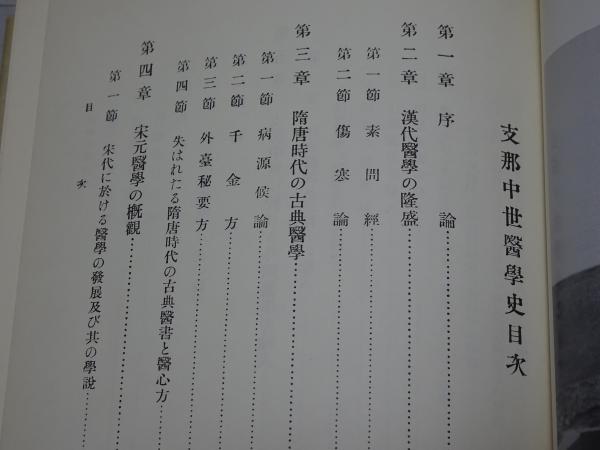 支那中世醫學史目次
第一章 序論
第二章 漢代醫學の隆盛
第一節 素問經
第二節 傷寒論
第三章 隋唐時代の古典醫學
第一節 病源候論
第二節 千金方
第三節 外臺秘要方
第四節 失はれたる隋唐時代の古典醫書と醫心方
第四章 宋元醫學の概觀
第一節 宋代に於ける醫學の發展及び其の學說
目次